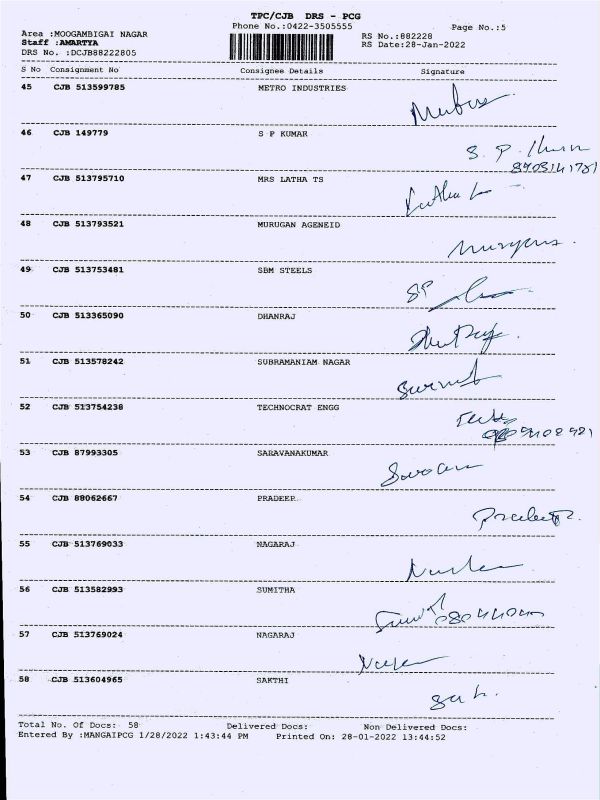 TPC/CJB DRS - PCG
Phone No.:0422-3505555
Page No.:5
Area :MOOGAMBIGAI NAGAR
RS No.:882228
Staff :AMARTYA
RS Date:28-Jan-2022
DRS No. :DCJB88222805
S No Consignment No Consignee Details Signature
45 CJB 513599785 METRO INDUSTRIES
46 CJB 149779 S P KUMAR
S. P.
47 CJB 513795710 MRS LATHA TS
48 CJB 513793521 MURUGAN AGENEID
49 CJB 513753481 SBM STEELS
50 CJB 513365090 DHANRAJ
51 CJB 513578242 SUBRAMANIAM NAGAR
52 CJB 513754238 TECHNOCRAT ENGG
53 CJB 87993305 SARAVANAKUMAR
54 CJB 88062667 PRADEEP
55 CJB 513769033 NAGARAJ
56 CJB 513582993 SUMITHA
57 CJB 513769024 NAGARAJ
58 CJB 513604965 SAKTHI
Total No. Of Docs: 58 Delivered Docs: Non Delivered Docs:
Entered By :MANGAIPCG 1/28/2022 1:43:44 PM Printed On: 28-01-2022 13:44:52